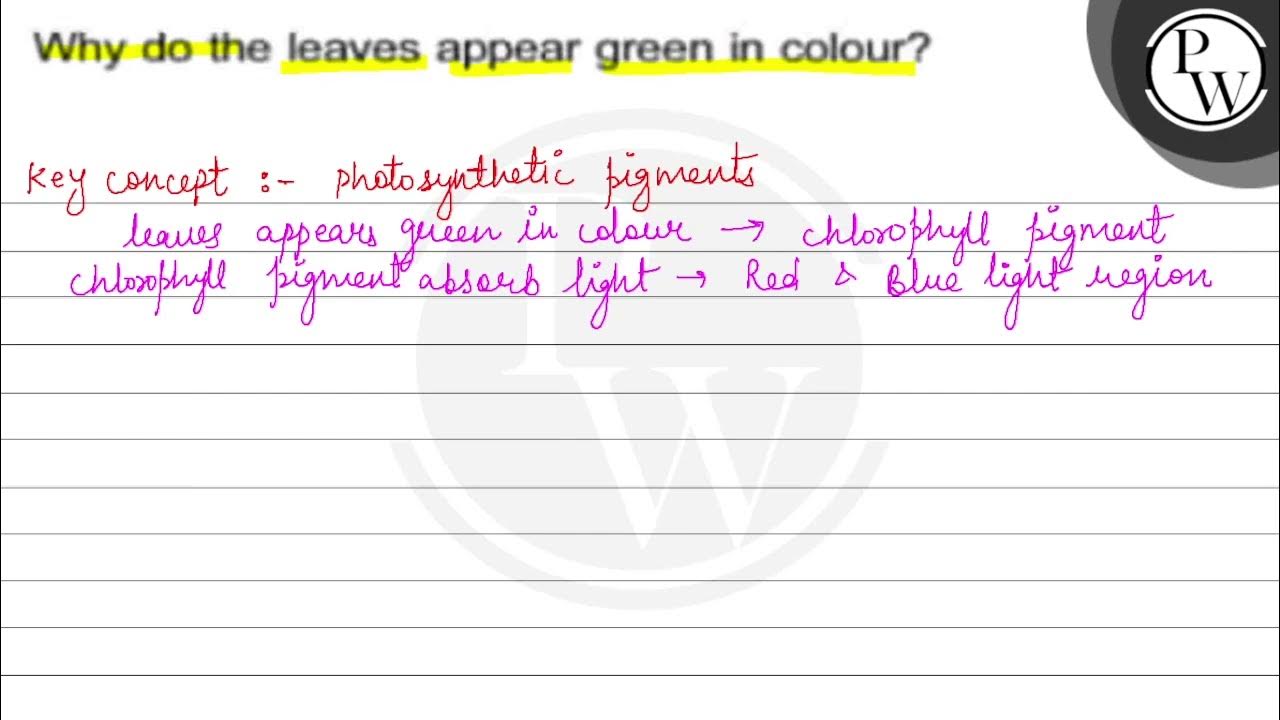 Why do the leaves appear green in colour?
PW
Key concept :- photosynthetic pigments
leaves appears green in colour → chlorophyll pigment
chlorophyll pigment absorb light → Red & Blue light region
PW